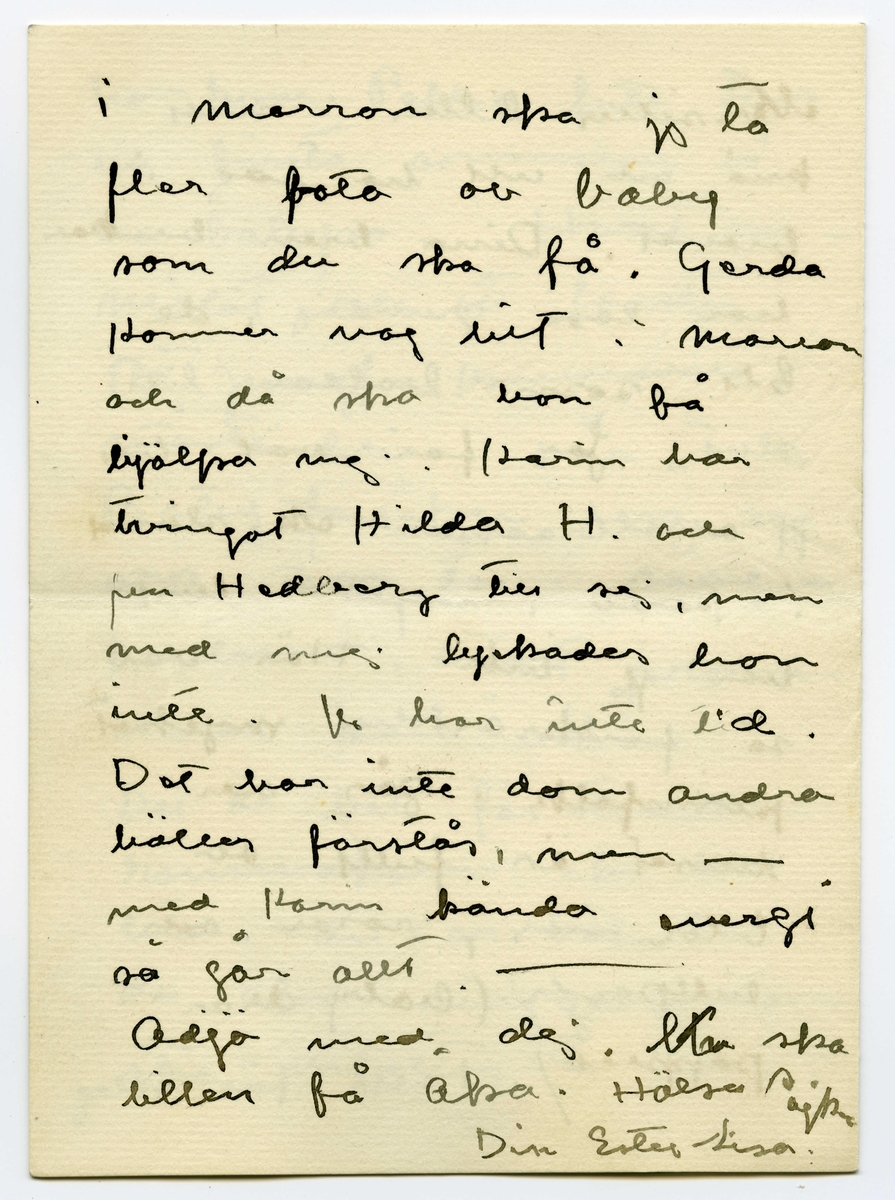 i morron ska jg ta
fler foto av baby
som du ska få. Gerda
kommer nog hit i morron
och då ska hon få
hjälpa mej. Karin har
tvingat Hilda H. och
fru Hedberg till sej, men
med mej lyckades hon
inte. Ja har inte tid.
Det har inte dom andra
häller förstås, men —
med Karins kända energi
så går allt. —
Adjö med dej. Nu ska
lillan få åka. Hälsa
Din Ester Lisa.